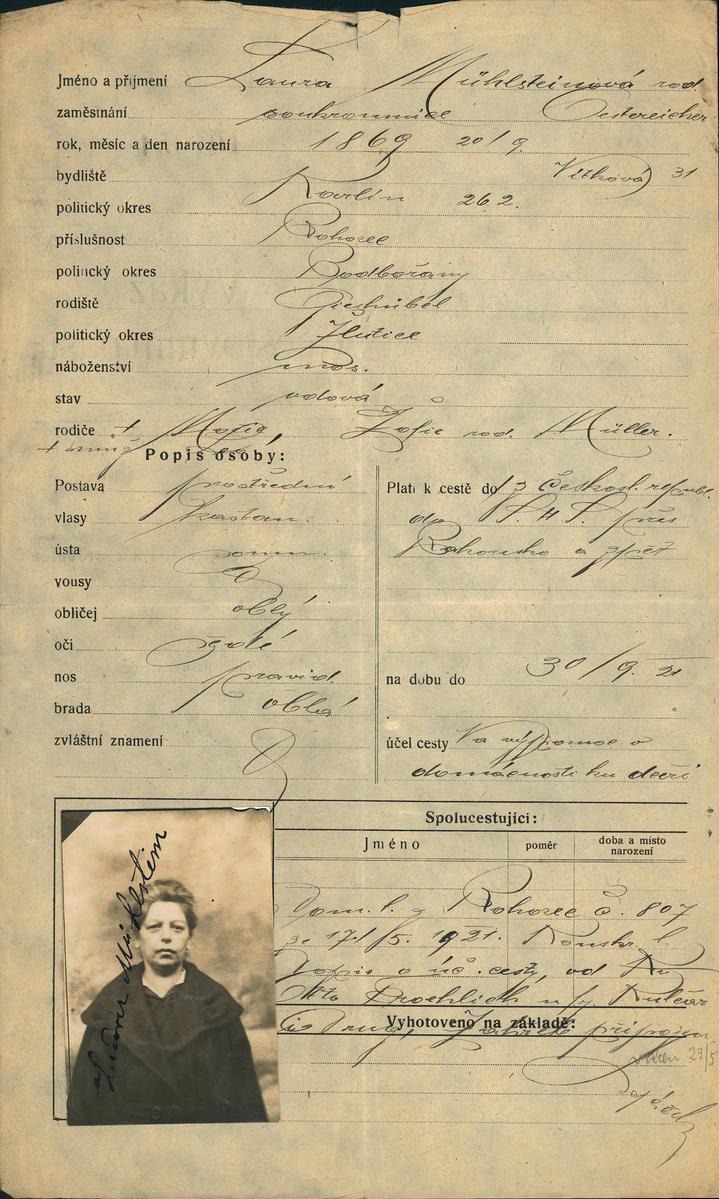 Jméno a příjmení Laura Mühlsteinová rod.
zaměstnání soukromnice Oestereicher
rok, měsíc a den narození 1869 20/9
bydliště Vítkova 31
politický okres Karlín 262.
příslušnost Rohozec
politický okres Podbořany
rodiště Gieshübel
politický okres Žlutice
náboženství mos.
stav vdova
rodiče + Žofie roz. Müller.
Popis osoby:
Postava prostřední
vlasy kaštan.
ústa
vousy
obličej oblý
oči
nos pravid.
brada oblá
zvláštní znamení
Platí k cestě do Českosl. republ.
do S.H.S. přes
Rakousko a zpět
na dobu do 30/9. 21
účel cesty Na výpomoc v
domácnosti ku dceři
Spolucestující:
Jméno poměr doba a místo narození
Dom. l. z Rohozec č. 807
ze 17/5. 1921.
Dopis o úč. cesty, od
Vyhotoveno na základě:
připojen
23/5
Laura Mühlstein